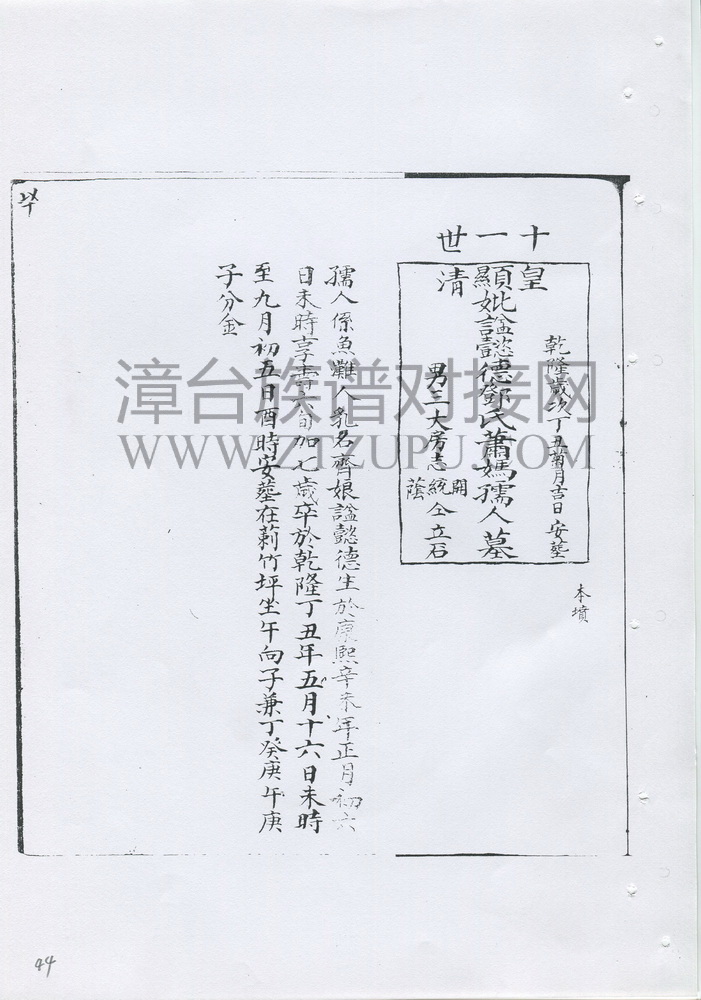 十一世
本墳
乾隆歲次丁丑菊月吉日安塟
皇清
顯妣諡懿德鄧氏蕭媽孺人墓
男三大房志開統蔭仝立石
孺人係魚難人乳名齊娘諡懿德生於康熙辛未年正月初六
日未時享壽六旬加七歲卒於乾隆丁丑年五月十六日未時
至九月初五日酉時安塟在莿竹坪坐午向子兼丁癸庚午庚
子分金
漳台族谱对接网
WWW.ZTZUPU.COM
44